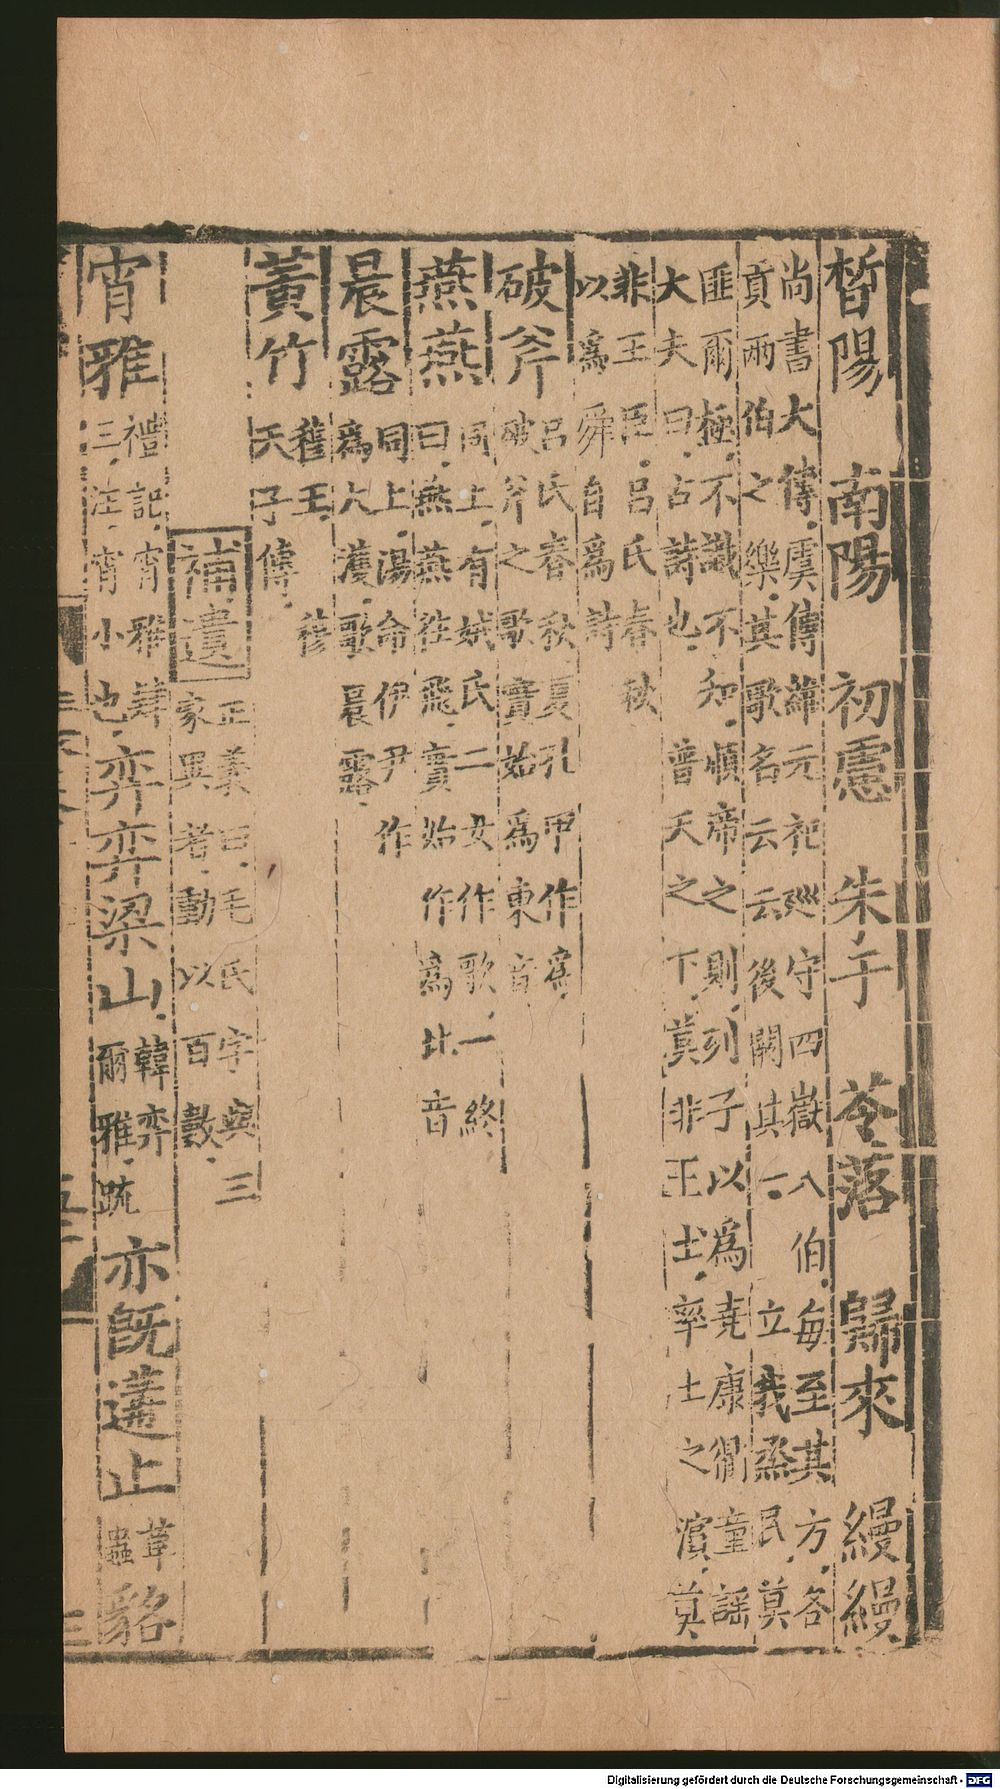 晳陽　南陽　初慮　朱于　苓落　歸來　縵縵
尚書大傳虞傳維元祀廵守四嶽八伯每至其方各
貢兩伯之樂其歌名云云後闕其一　立我烝民莫
匪爾極不識不知順帝之則列子以爲堯康衢童謠
大夫曰古詩也　普天之下莫非王土率土之濱莫
非王臣呂氏春秋
以爲舜自爲詩
破斧
呂氏春秋夏孔甲作爲
破斧之歌實始爲東音
燕燕
同上有娀氏二女作歌一終
曰燕燕往飛實始作爲北音
晨露
同上湯命伊尹作
爲大濩歌晨露
黃竹
穆王　穆
天子傳
補遺
正義曰毛氏字與三
家異者動以百數
宵雅
禮記宵雅肄
三注宵小也
弈弈梁山
韓弈
爾雅疏
亦旣遘止
草
蟲
貉
三
Digitalisierung gefördert durch die Deutsche Forschungsgemeinschaft - DFG